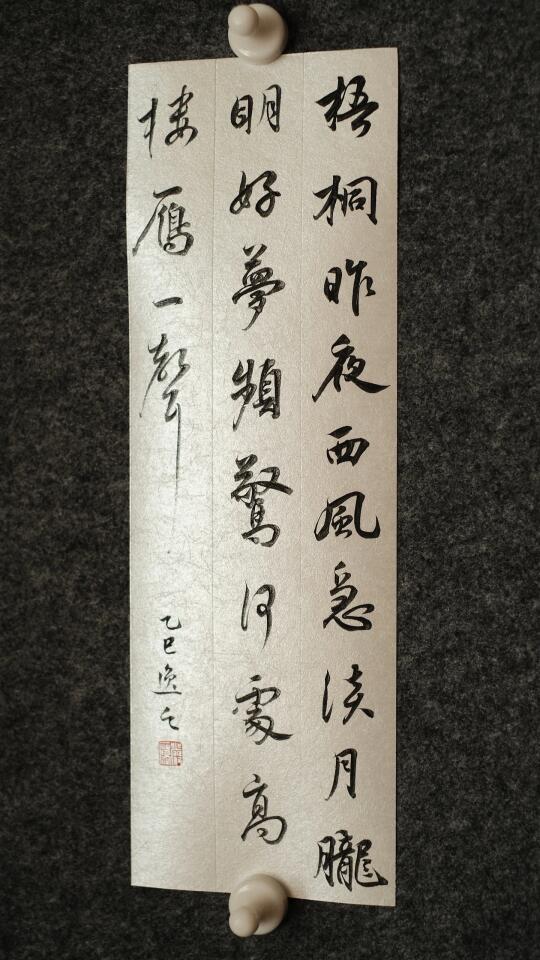 梧桐昨夜西風急淡月朧
明好夢頻驚何處高
樓雁一聲
乙巳逸之